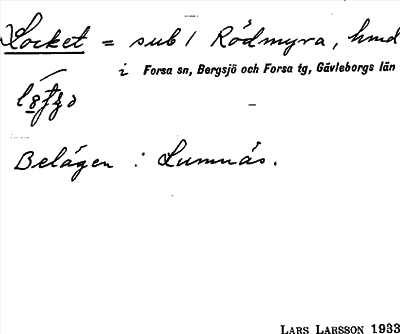 Locket = sub / Rödmyra, hmd
i Forsa sn, Bergsjö och Forsa tg, Gävleborgs län
Belägen : Lumnäs.
LARS LARSSON 1933